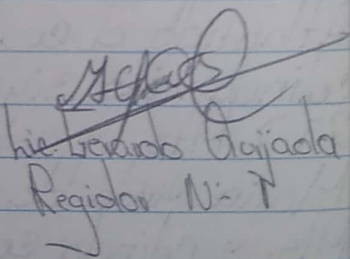 Lic. Gerardo Quijada
Regidor N- 1